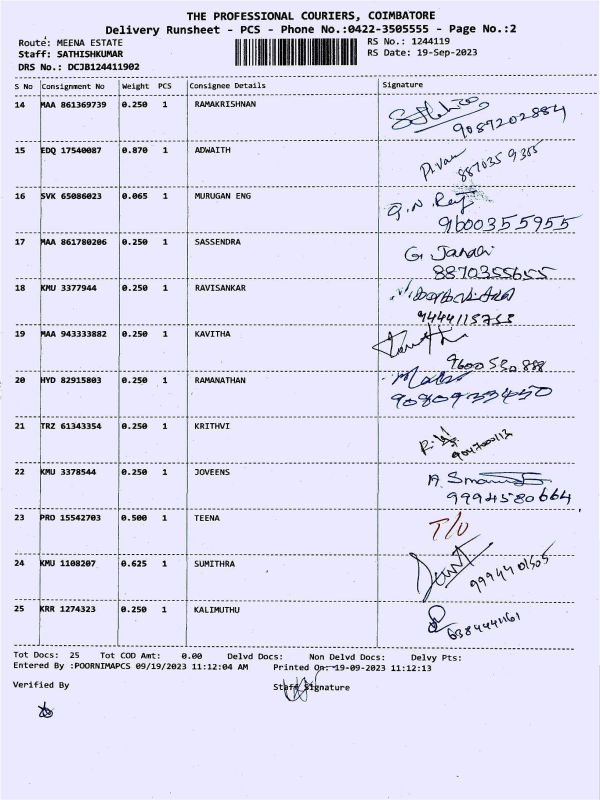 THE PROFESSIONAL COURIERS, COIMBATORE
Delivery Runsheet - PCS - Phone No.:0422-3505555 - Page No.:2
Route: MEENA ESTATE RS No.: 1244119
Staff: SATHISHKUMAR RS Date: 19-Sep-2023
DRS No.: DCJB124411902
S No Consignment No Weight PCS Consignee Details Signature
14 MAA 861369739 0.250 1 RAMAKRISHNAN
9087202884
15 EDQ 17540087 0.870 1 ADWAITH
16 SVK 65086023 0.065 1 MURUGAN ENG
9600355955
17 MAA 861780206 0.250 1 SASSENDRA G. Janaki
8870355655
18 KMU 3377944 0.250 1 RAVISANKAR
19 MAA 943333882 0.250 1 KAVITHA
9600530888
20 HYD 82915803 0.250 1 RAMANATHAN
9080933450
21 TRZ 61343354 0.250 1 KRITHVI
22 KMU 3378544 0.250 1 JOVEENS
9994580664
23 PRO 15542703 0.500 1 TEENA T/U
24 KMU 1108207 0.625 1 SUMITHRA
25 KRR 1274323 0.250 1 KALIMUTHU
Tot Docs: 25 Tot COD Amt: 0.00 Delvd Docs: Non Delvd Docs: Delvy Pts:
Entered By :POORNIMAPCS 09/19/2023 11:12:04 AM Printed On: 19-09-2023 11:12:13
Verified By Staff Signature